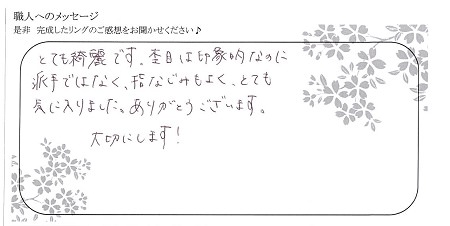 職人へのメッセージ
是非 完成したリングのご感想をお聞かせください♪
とても綺麗です。杢目は印象的なのに
派手ではなく、指なじみもよく、とても
気に入りました。ありがとうございます。
大切にします!